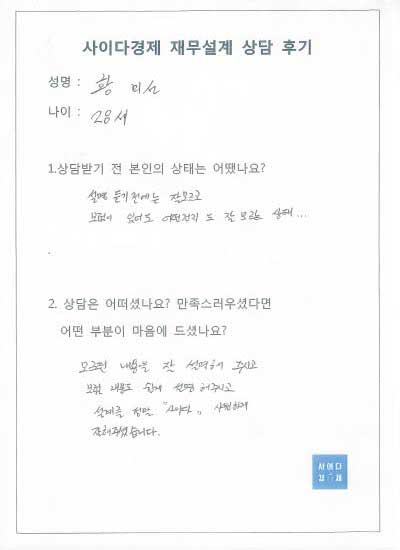 사이다경제 재무설계 상담 후기
성명 : 황 미선
나이 : 28세
1.상담받기 전 본인의 상태는 어땠나요?
설명 듣기 전에는 잘모르고
보험이 있어도 어떤건지 도 잘 모르는 상태...
.
2. 상담은 어떠셨나요? 만족스러우셨다면
어떤 부분이 마음에 드셨나요?
모르던 내용을 잘 설명해 주시고
보험 내용도 쉽게 설명 해주시고
설계를 정말 "사이다" 시원하게
잘해주셨습니다.
사이다
경제